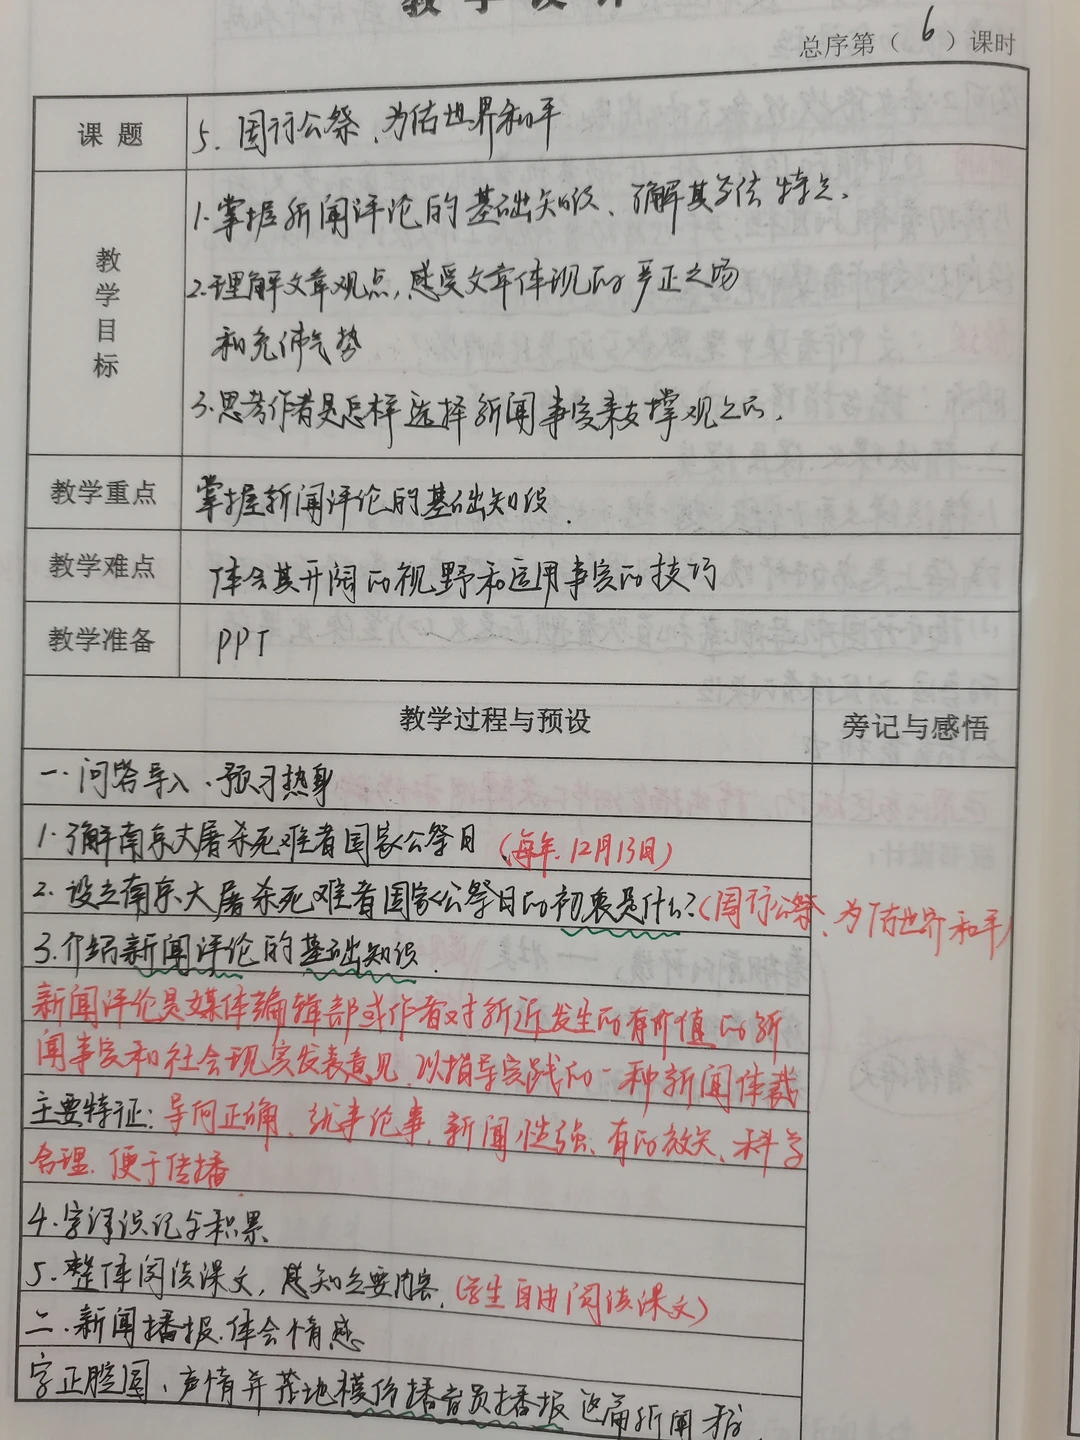 教学设计
总序第（6）课时
课题
5. 国行公祭、为佑世界和平
教学目标
1.掌握新闻评论的基础知识、了解其写法特点、
2.理解文章观点,感受文章体现的严正立场
和充沛气势
3.思考作者是怎样选择新闻事实来支撑观点的.
教学重点
掌握新闻评论的基础知识.
教学难点
体会其开阔的视野和运用事实的技巧
教学准备
PPT
教学过程与预设
旁记与感悟
一.问答导入、预习热身
1.了解南京大屠杀死难者国家公祭日（每年.12月13日）
2.设立南京大屠杀死难者国家公祭日的初衷是什么?（国行公祭、为佑世界和平）
3.介绍新闻评论的基础知识.
新闻评论是媒体编辑部或作者对新近发生的有价值的新
闻事实和社会现实发表意见.以指导实践的一种新闻体裁
主要特征:导向正确、就事论事.新闻性强、有的放矢、科学
合理.便于传播.
4.字词识记与积累
5.整体阅读课文,感知主要内容.(学生自由阅读课文)
二.新闻播报.体会情感
字正腔圆、声情并茂地模仿播音员播报这篇新闻